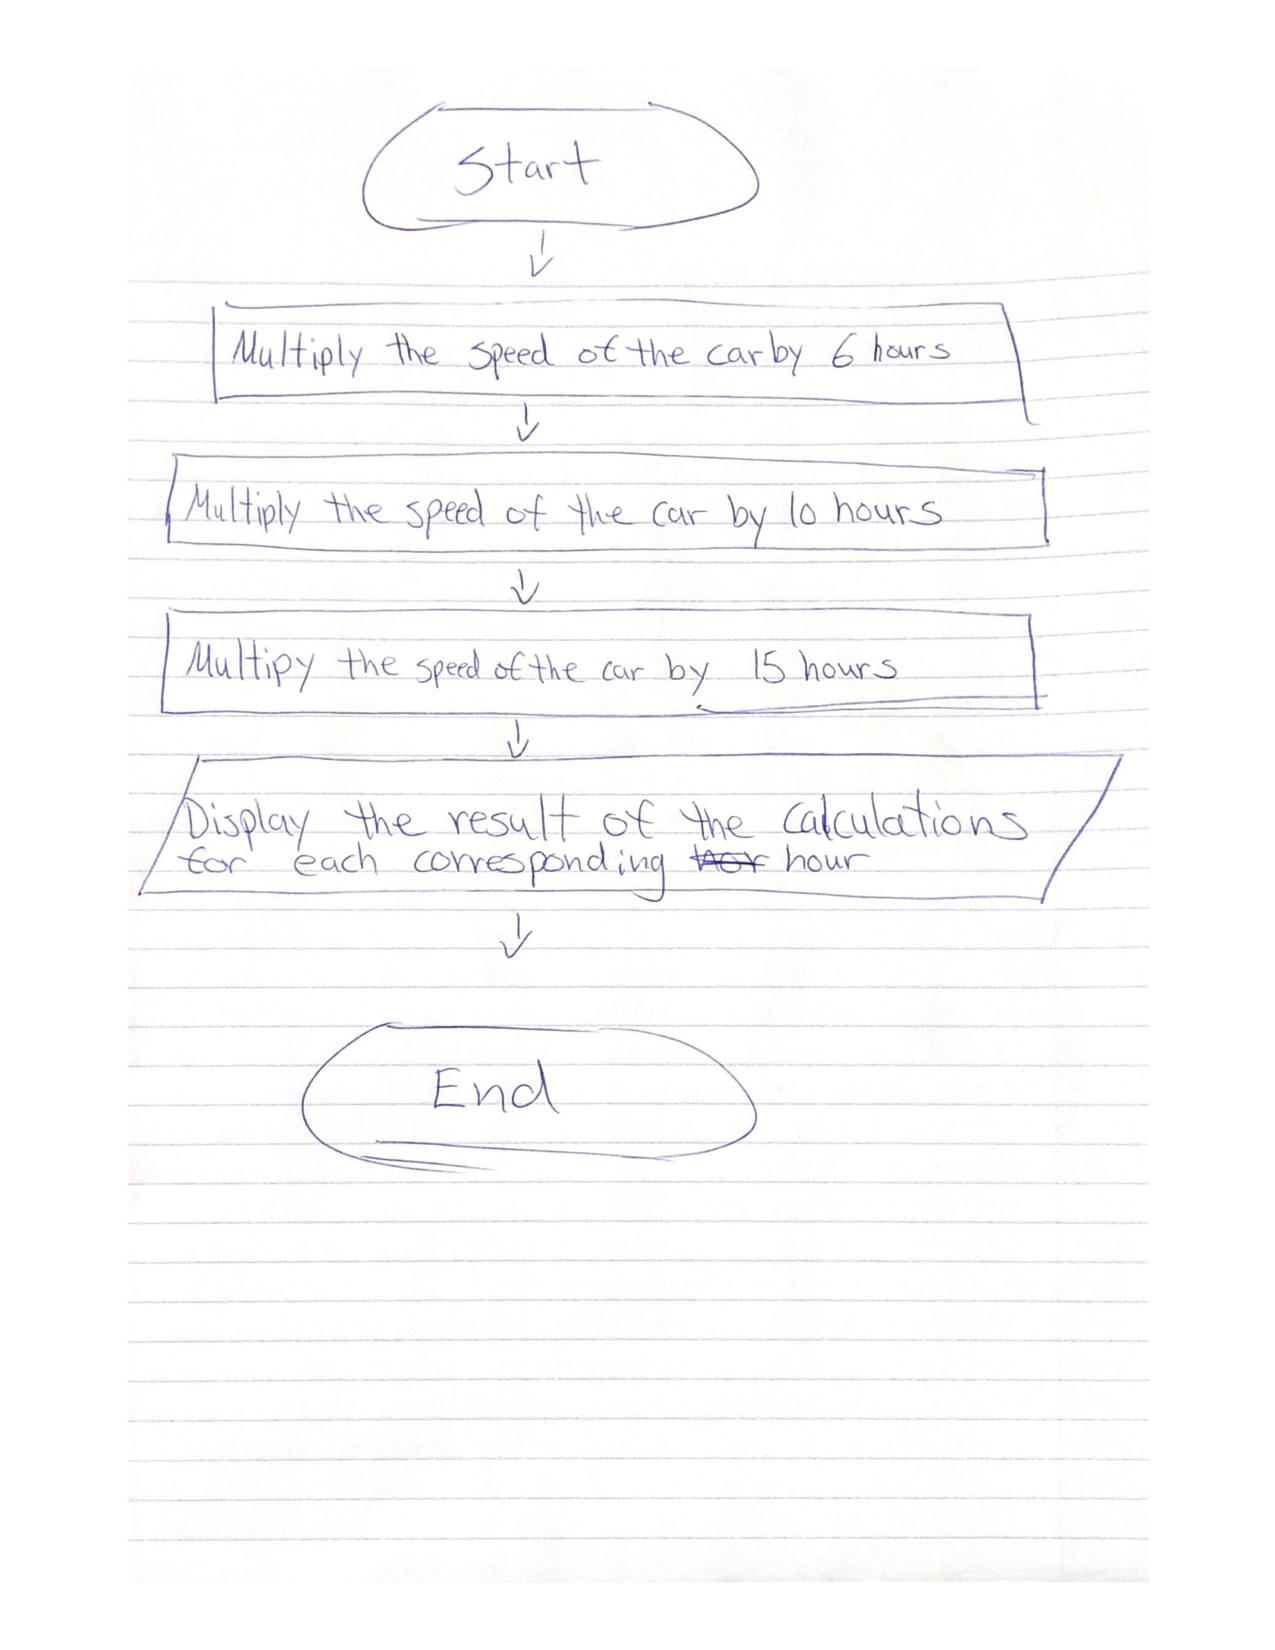 Start
Multiply the speed of the car by 6 hours
Multiply the speed of the car by 10 hours
Multipy the speed of the car by 15 hours
Display the result of the calculations
for each corresponding hour
End